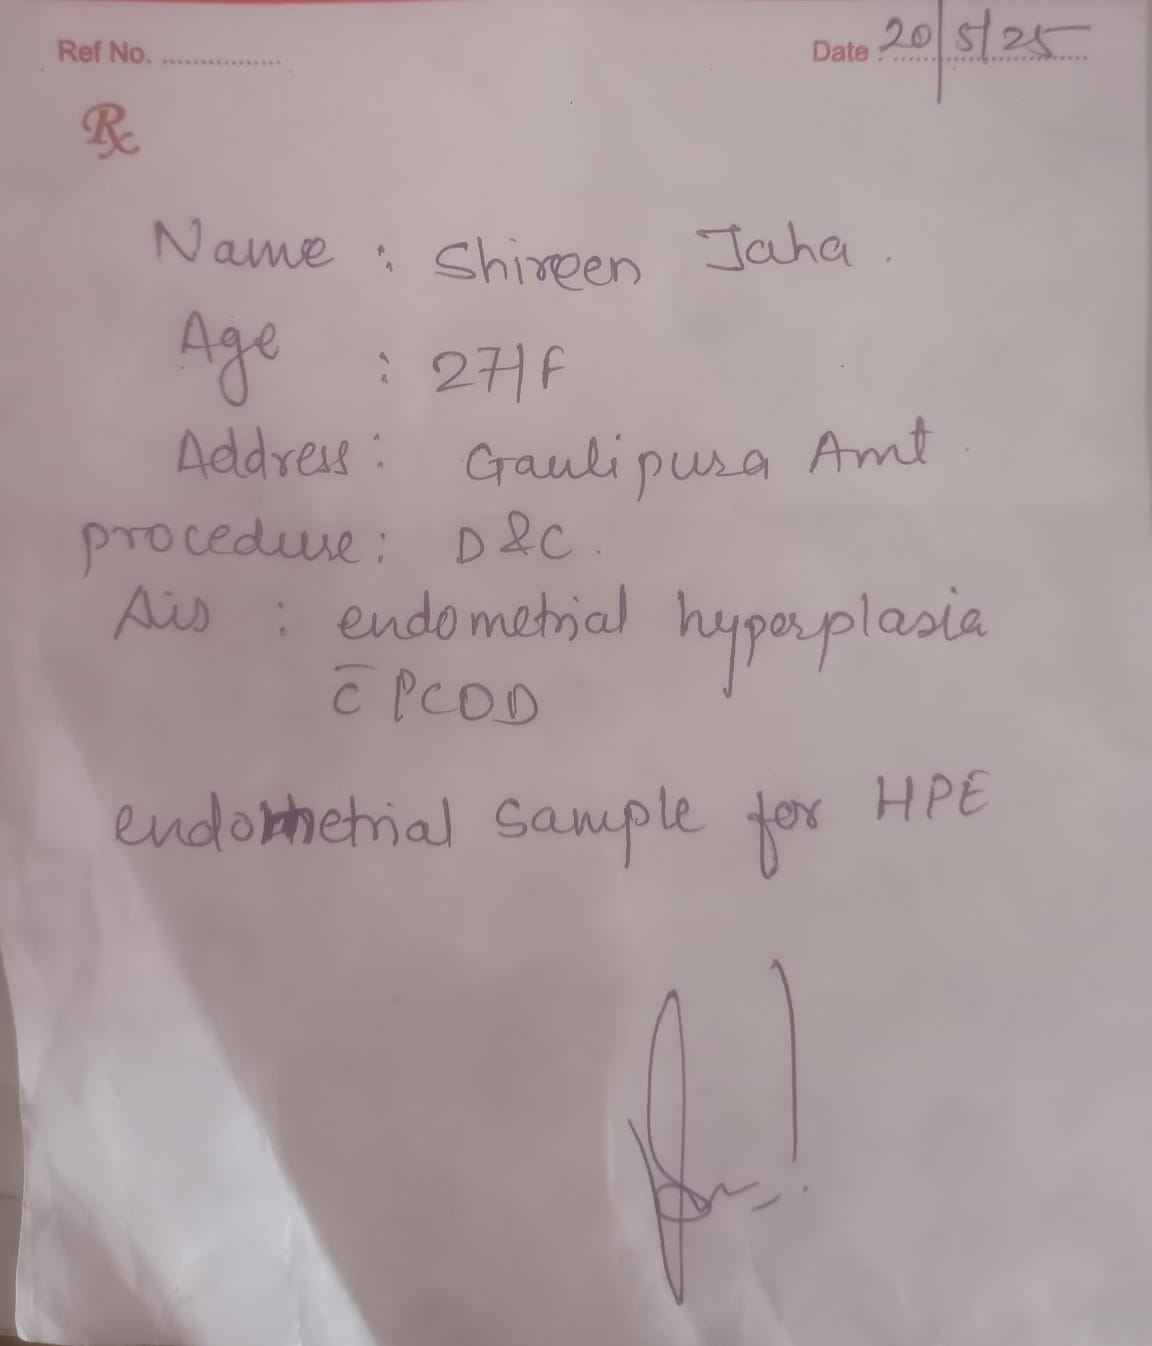 Ref No. ............... Date : 20/5/25
Rx
Name : Shireen Jaha .
Age : 27/F
Address : Gaulipura Amt .
procedure : D &C .
Ais : endometrial hyperplasia
c̄ PCOD
endometrial sample for HPE